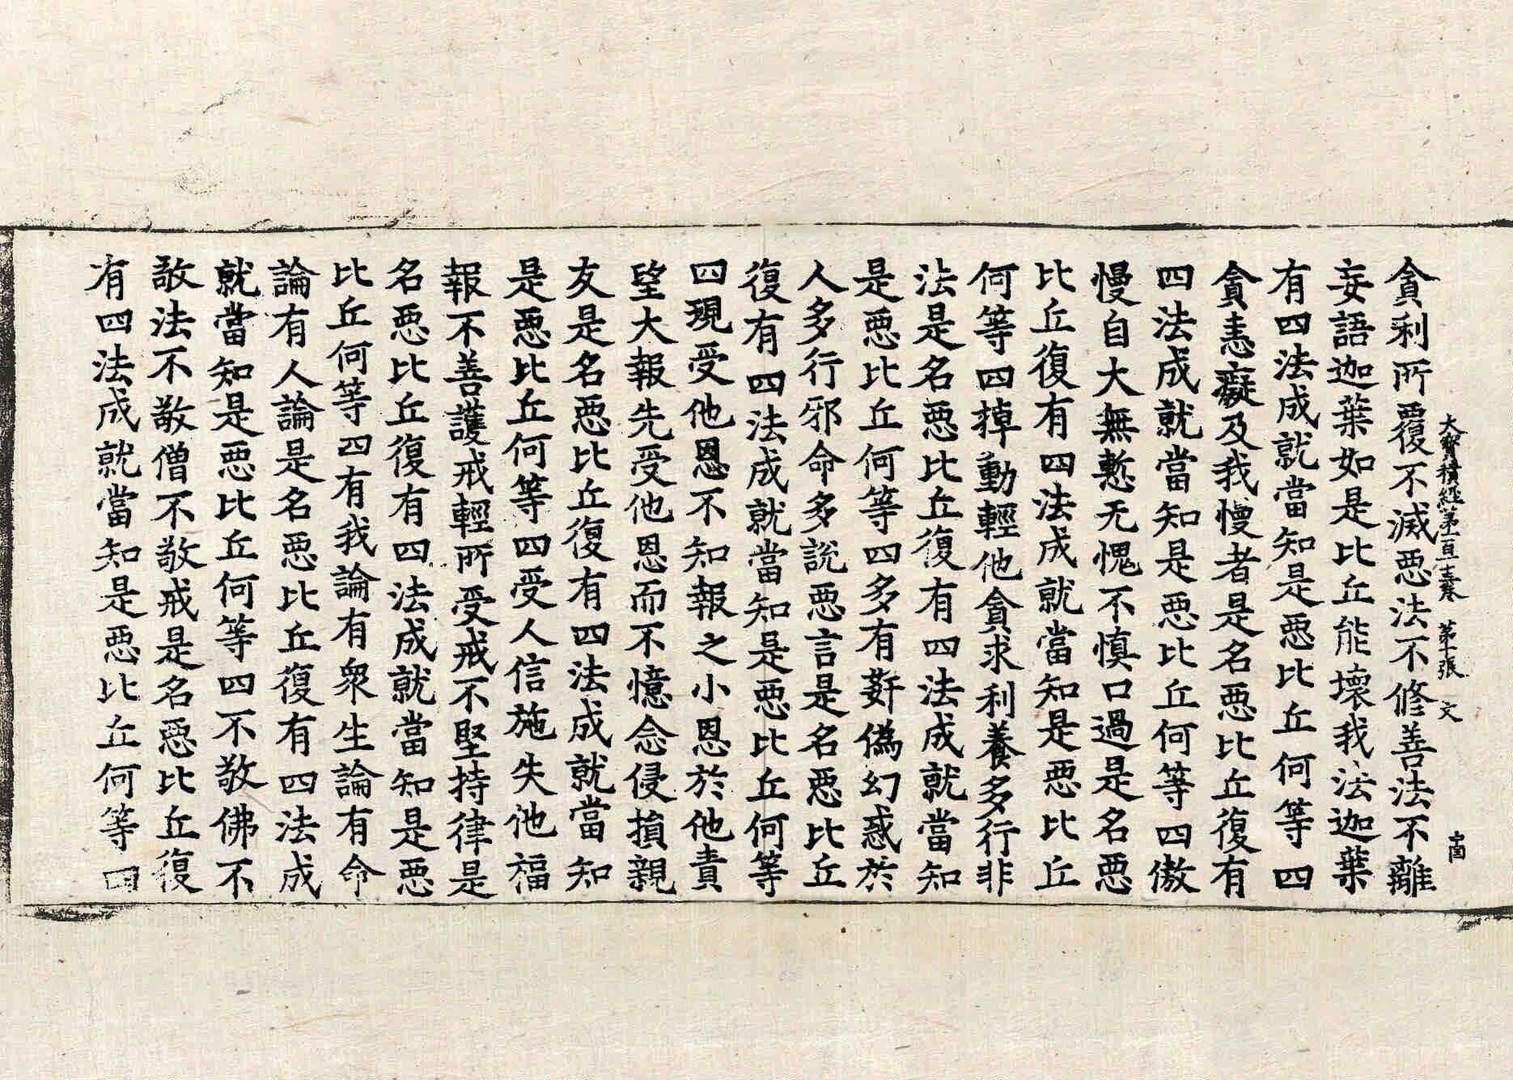 大寶積經第一百十三卷 第十張 文
貪利所覆不滅惡法不修善法不離
妄語迦葉如是比丘能壞我法迦葉
有四法成就當知是惡比丘何等四
貪恚癡及我慢者是名惡比丘復有
四法成就當知是惡比丘何等四傲
慢自大無慙无愧不慎口過是名惡
比丘復有四法成就當知是惡比丘
何等四掉動輕他貪求利養多行非
法是名惡比丘復有四法成就當知
是惡比丘何等四多有姧偽幻惑於
人多行邪命多說惡言是名惡比丘
復有四法成就當知是惡比丘何等
四現受他恩不知報之小恩於他責
望大報先受他恩而不憶念侵損親
友是名惡比丘復有四法成就當知
是惡比丘何等四受人信施失他福
報不善護戒輕所受戒不堅持律是
名惡比丘復有四法成就當知是惡
比丘何等四有我論有衆生論有命
論有人論是名惡比丘復有四法成
就當知是惡比丘何等四不敬佛不
敬法不敬僧不敬戒是名惡比丘復
有四法成就當知是惡比丘何等四